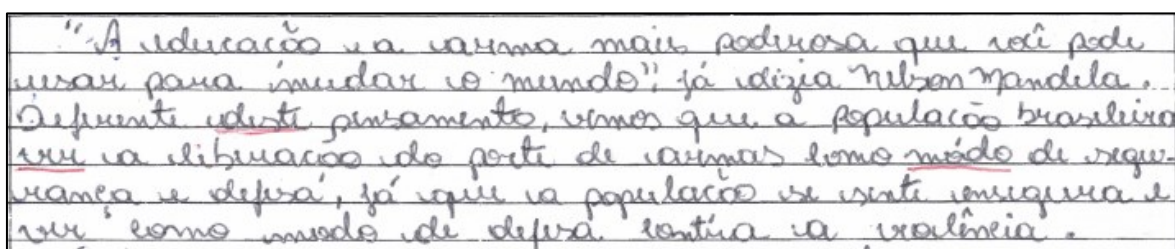 "A educação e a arma mais poderosa que você pode
usar para mudar o mundo", já dizia Nelson Mandela.
Diferente deste pensamento, vemos que a população brasileira
ver a liberação do porte de armas como módo de segu-
rança e defesa, já que a população se sente insegura e
ver como modo de defesa contra a violência.